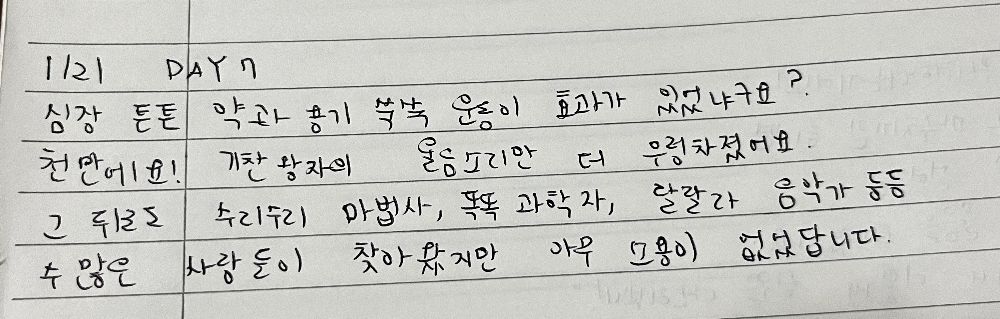 1/21 DAY 7
심장 튼튼 약과 용기 쑥쑥 운동이 효과가 있었냐구요?
천만에요! 기찬 왕자의 울음소리만 더 우렁차졌어요.
그 뒤로도 수리수리 마법사, 똑똑 과학자, 랄랄라 음악가 등등
수 많은 사람들이 찾아왔지만 아무 소용이 없었답니다.